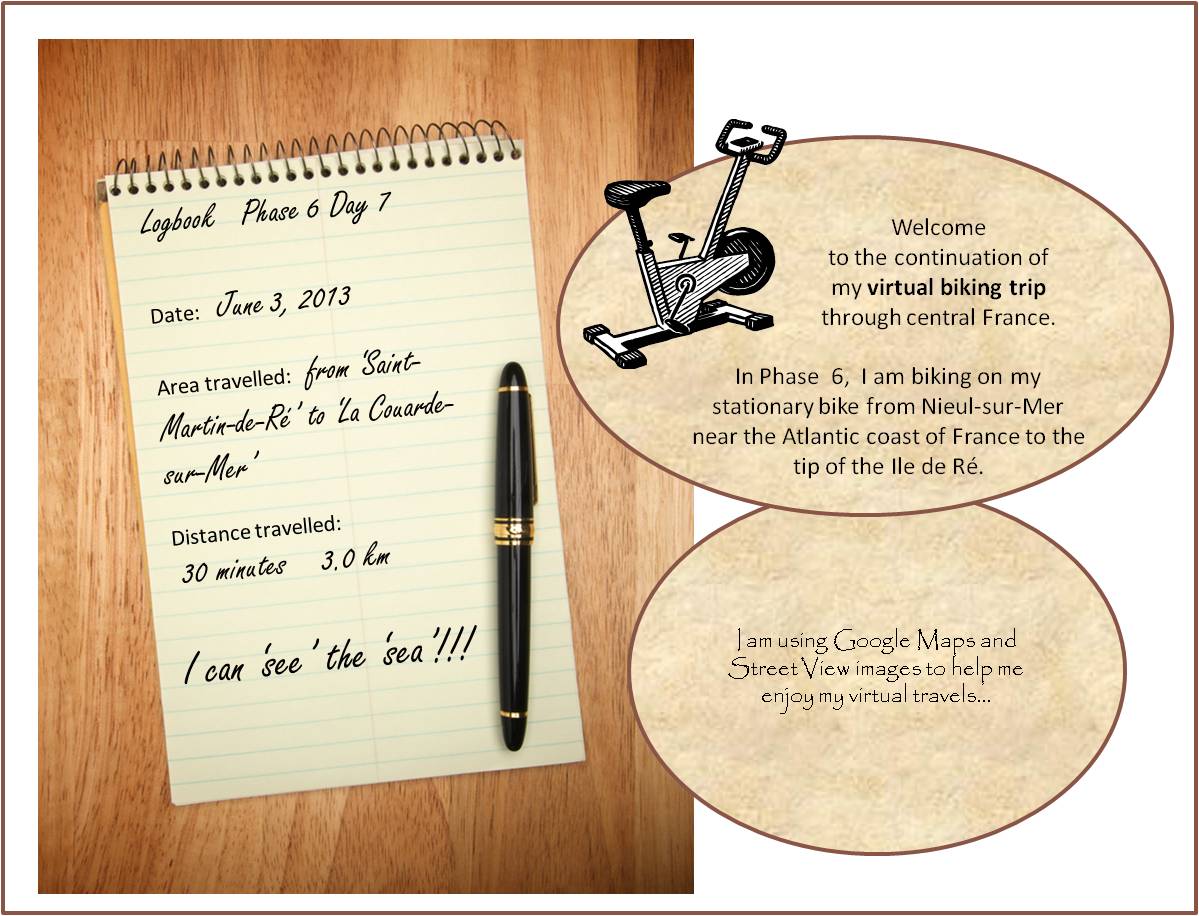 Logbook Phase 6 Day 7
Date: June 3, 2013
Area travelled: from 'Saint-
Martin-de-Ré' to 'La Couarde-
sur-Mer'
Distance travelled:
30 minutes 3.0 km
I can 'see' the 'sea'!!!
Welcome
to the continuation of
my virtual biking trip
through central France.
In Phase 6, I am biking on my
stationary bike from Nieul-sur-Mer
near the Atlantic coast of France to the
tip of the Ile de Ré.
I am using Google Maps and
Street View images to help me
enjoy my virtual travels...